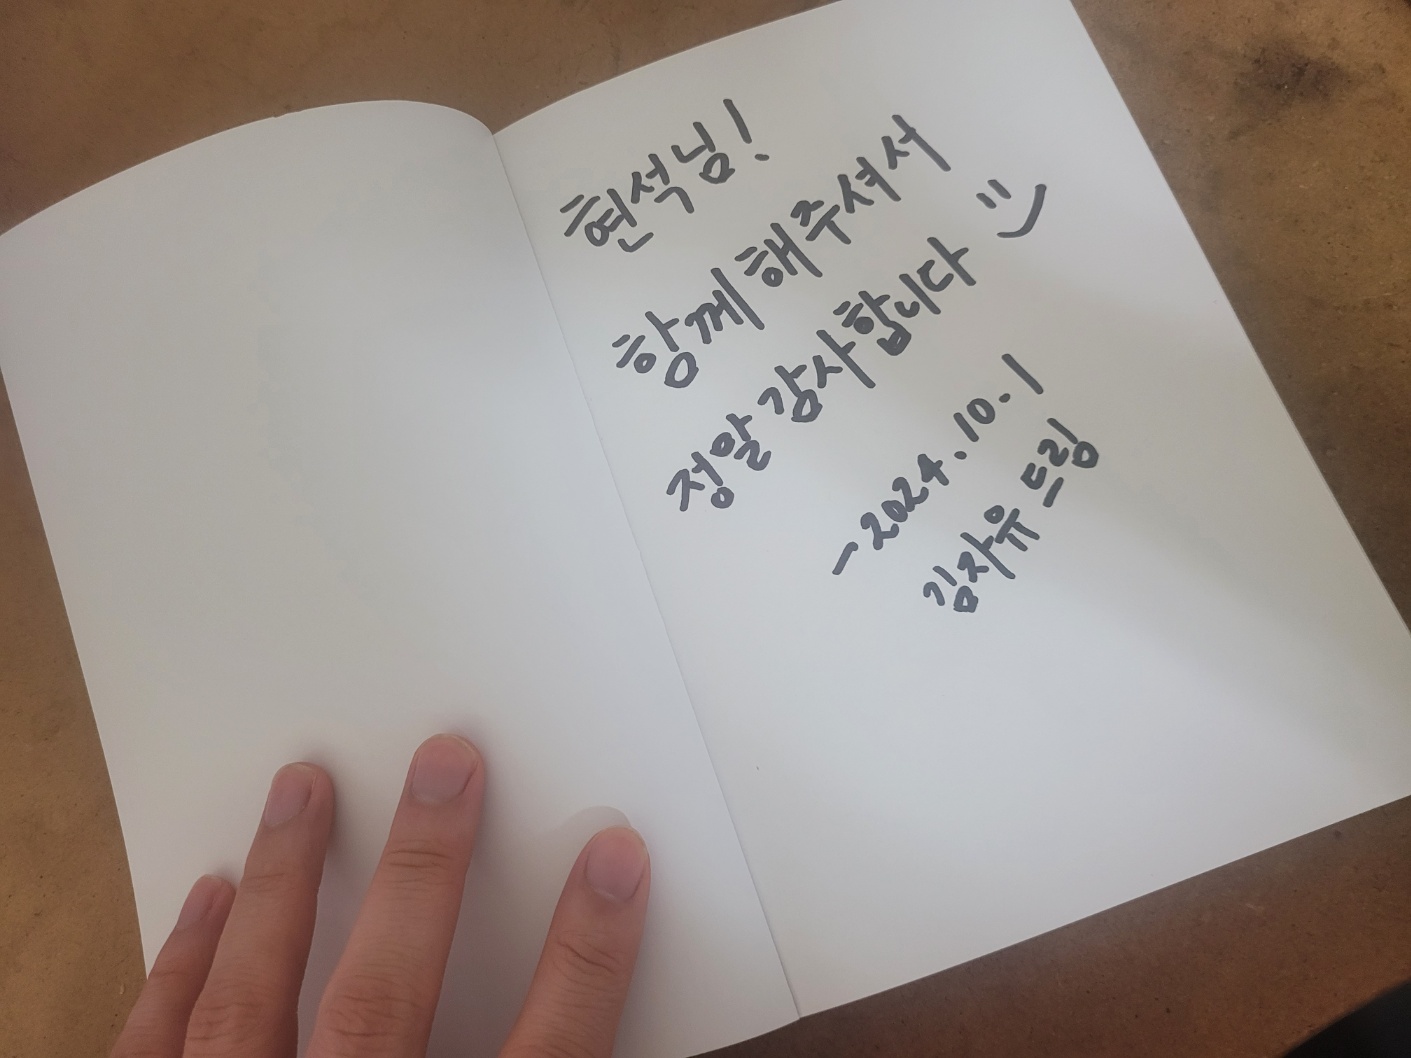 현석님!
함께해주셔서
정말 감사합니다 :)
-2024.10.1
김자유 드림